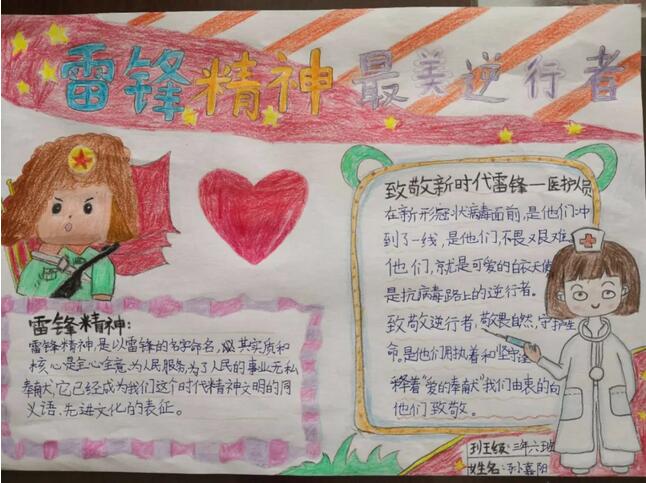 雷锋精神 最美逆行者
致敬新时代雷锋—医护人员
在新形冠状病毒面前,是他们冲
到了一线,是他们,不畏艰难
他们,就是可爱的白衣天使
是抗病毒路上的逆行者。
致敬逆行者,敬畏自然,守护生
命。是他们用执着和坚守
释着"爱的奉献"我们由衷的向
他们致敬。
雷锋精神:
雷锋精神,是以雷锋的名字命名,以其实质和
核心是全心全意为人民服务,为了人民的事业无私
奉献,它已经成为我们这个时代精神文明的同
义语、先进文化的表征。
班级:三年六班
姓名:孙嘉阳